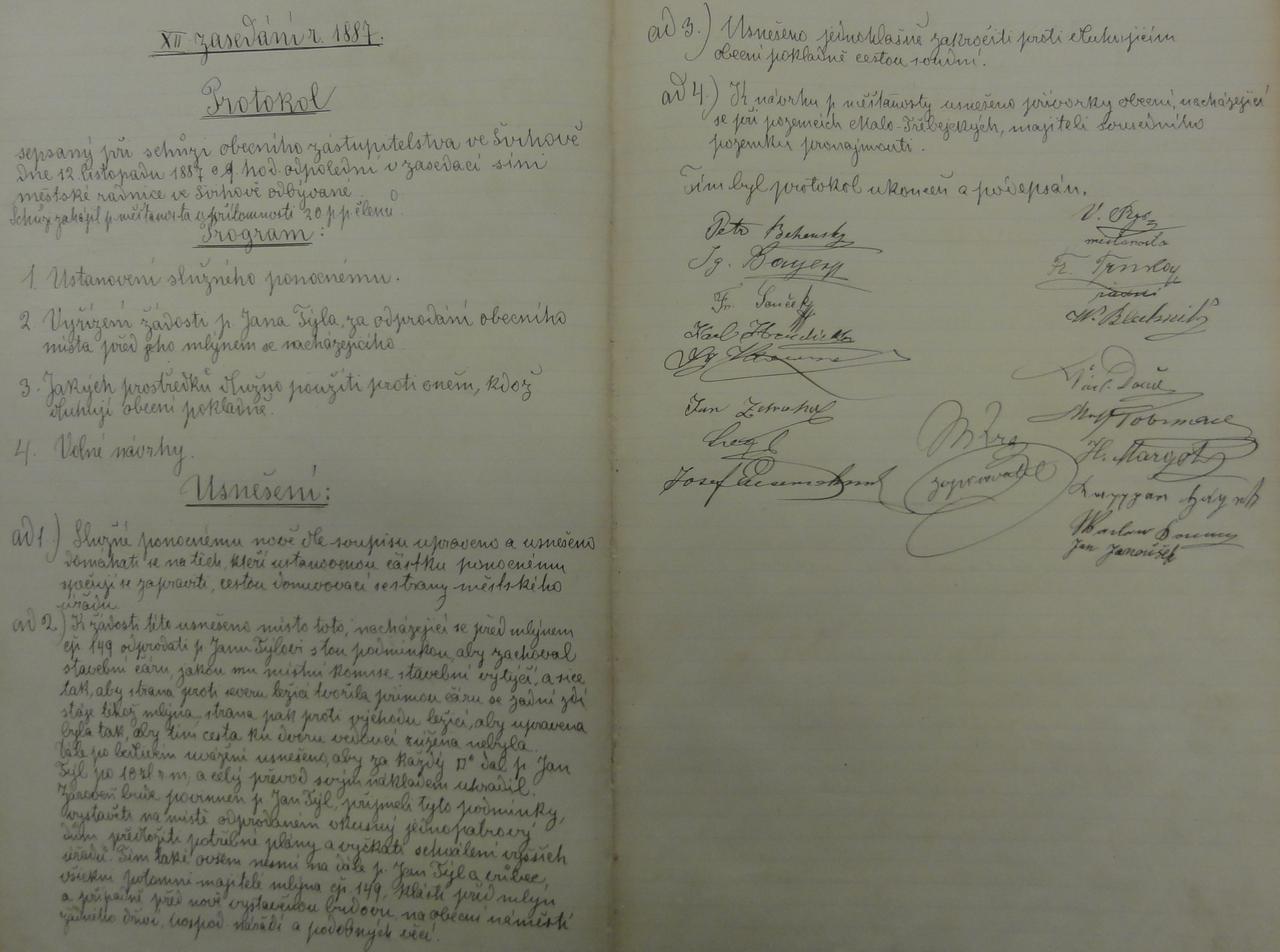 XII zasedání r. 1887.
Protokol
sepsaný při schůzi obecního zastupitelstva ve Švihově
dne 12. listopadu 1887 o hod. odpolední v zasedací síni
městské radnice ve Švihově odbývané.
Schůzi zahájil p. městanosta u přítomnosti 20 p.p. členů.
Program:
1. Ustanovení služného ponocnému.
2 Vyřízení žádosti p. Jana Týla, za odprodání obecního
místa před jeho mlýnem se nacházejícího.
3. Jakých prostředků dlužno použíti proti oněm, kdož
dluhují obecní pokladně.
4. Volné návrhy.
Usnešení:
ad 1.) Služné ponocnému nově dle soupisu upraveno a usnešeno
domáhati se na těch, kteří ustanovenou částku ponocnému
zpěčují se zapraviti, cestou domlouvací se strany městského
úřadu.
ad 2.) K žádosti této usnešeno místo toto, nacházející se před mlýnem
čp. 149 odprodati p. Janu Týlovi s tou podmínkou, aby zachoval
stavební čáru, jakou mu místní komise stavební vytýčí, a sice
tak, aby strana proti severu ležící tvořila přímou čáru se zadní zdí
stáje téhož mlýna, strana pak proti východu ležící, aby upravena
byla tak, aby tím cesta ku dvoru vedoucí zúžena nebyla.
Dále po bedlivém uvážení usnešeno, aby za každý □° dal p. Jan
Týl po 10 zl r. m, a celý převod svým nákladem uhradil.
Zároveň bude povinnen p. Jan Týl, přijmeli tyto podmínky,
vystavěti na místě odprodaném vkusný jednopatrový
dům, předložiti potřebné plány a vyčkati schválení vyšších
úřadů. Tím také ovšem nesmí na dále p. Jan Týl a vůbec
všickni potomní majitelé mlýna čp. 149, klásti před mlýn
a případně před nově vystavenou budovu, na obecní náměstí
žádného dříví, hospod. nářadí a podobných věcí.
ad 3.) Usnešeno jednohlasně zakročiti proti dluhujícím
obecní pokladně cestou soudní.
ad 4.) K návrhu p. městanosty usnešeno přívorky obecní, nacházející
se při pozemcích Malo-Třebejckých, majiteli sousedního
pozemku pronajmouti.
Tím byl protokol ukončen a podepsán.
Petr Behensky
Ig. Bayerl
Fr. Souček
Karl
Jan
Josef
V.
městanosta
Fr. Trnsky
radní
W.
Václ. Douč
H. Margot
zapisovatel
Jan Janoušek